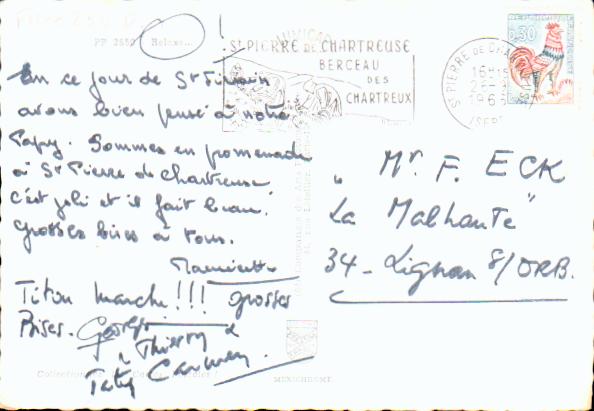 PP 2550 Relaxe...
ST PIERRE DE CHARTREUSE
BERCEAU
DES
CHARTREUX
0,30
ST PIERRE DE CHAR
16H15
196
ISERE
En ce jour de St Firmin
avons bien pensé à notre
Papy. Sommes en promenade
à St Pierre de Chartreuse
c'est joli et il fait beau.
Grosses bises à tous.
Mamiette
Titou marche!!! grosses
Bises. Georges
& Thierry &
Taty Carmen
" Mr F. ECK
La Malhaute"
34 - Lignan S/ORB.
MEXICHROME